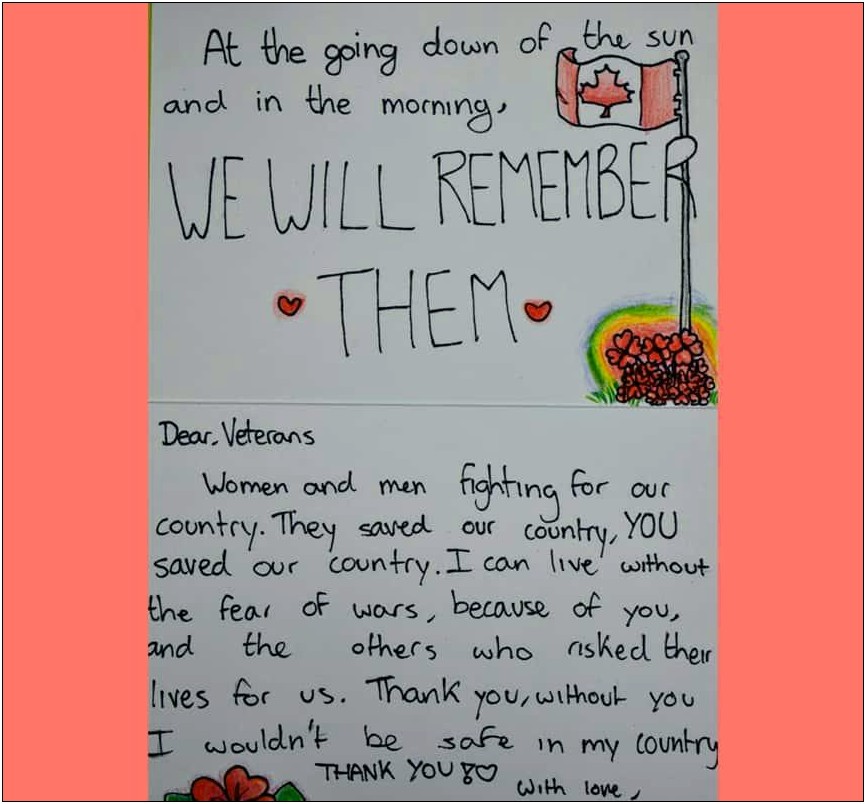 At the going down of the sun
and in the morning,
WE WILL REMEMBER
THEM
Dear, Veterans
Women and men fighting for our
country. They saved our country, YOU
saved our country. I can live without
the fear of wars, because of you,
and the others who risked their
lives for us. Thank you, without you
I wouldn't be safe in my country
THANK YOU!
With love,